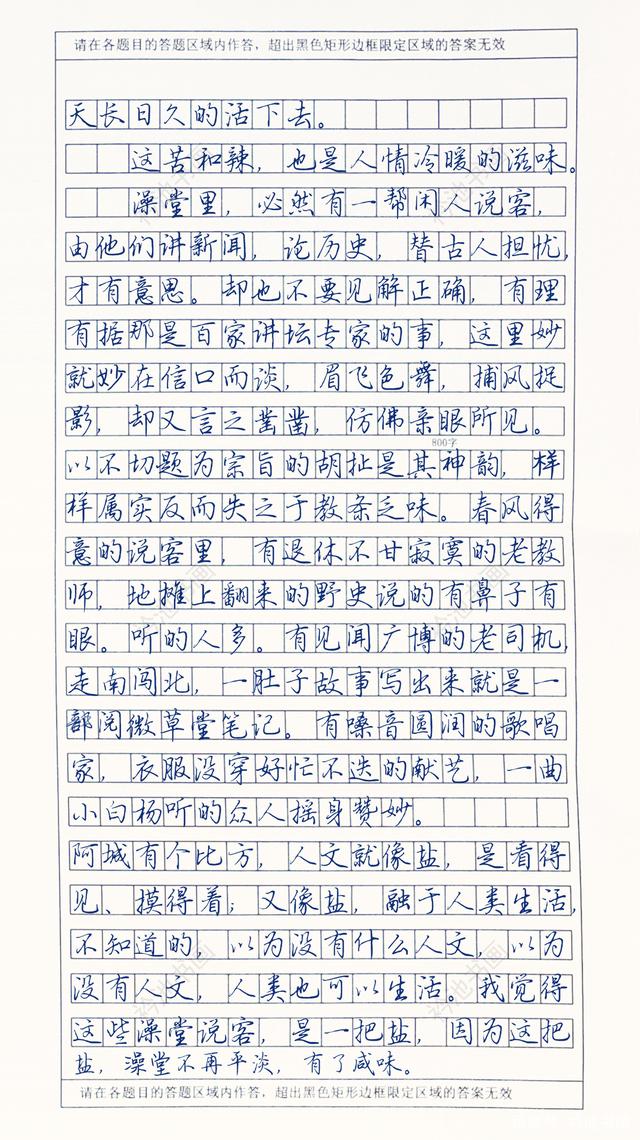 请在各题目的答题区域内作答，超出黑色矩形边框限定区域的答案无效
天长日久的活下去。
这苦和辣，也是人情冷暖的滋味。
澡堂里，必然有一帮闲人说客，
由他们讲新闻，论历史，替古人担忧，
才有意思。却也不要见解正确，有理
有据那是百家讲坛专家的事，这里妙
就妙在信口而谈，眉飞色舞，捕风捉
影，却又言之凿凿，仿佛亲眼所见。
800字
以不切题为宗旨的胡扯是其神韵，样
样属实反而失之于教条乏味。春风得
意的说客里，有退休不甘寂寞的老教
师，地摊上翻来的野史说的有鼻子有
眼。听的人多。有见闻广博的老司机，
走南闯北，一肚子故事写出来就是一
部阅微草堂笔记。有嗓音圆润的歌唱
家，衣服没穿好忙不迭的献艺，一曲
小白杨听的众人摇身赞妙。
阿城有个比方，人文就像盐，是看得
见、摸得着；又像盐，融于人类生活，
不知道的，以为没有什么人文，以为
没有人文，人类也可以生活。我觉得
这些澡堂说客，是一把盐，因为这把
盐，澡堂不再平淡，有了咸味。
请在各题目的答题区域内作答，超出黑色矩形边框限定区域的答案无效